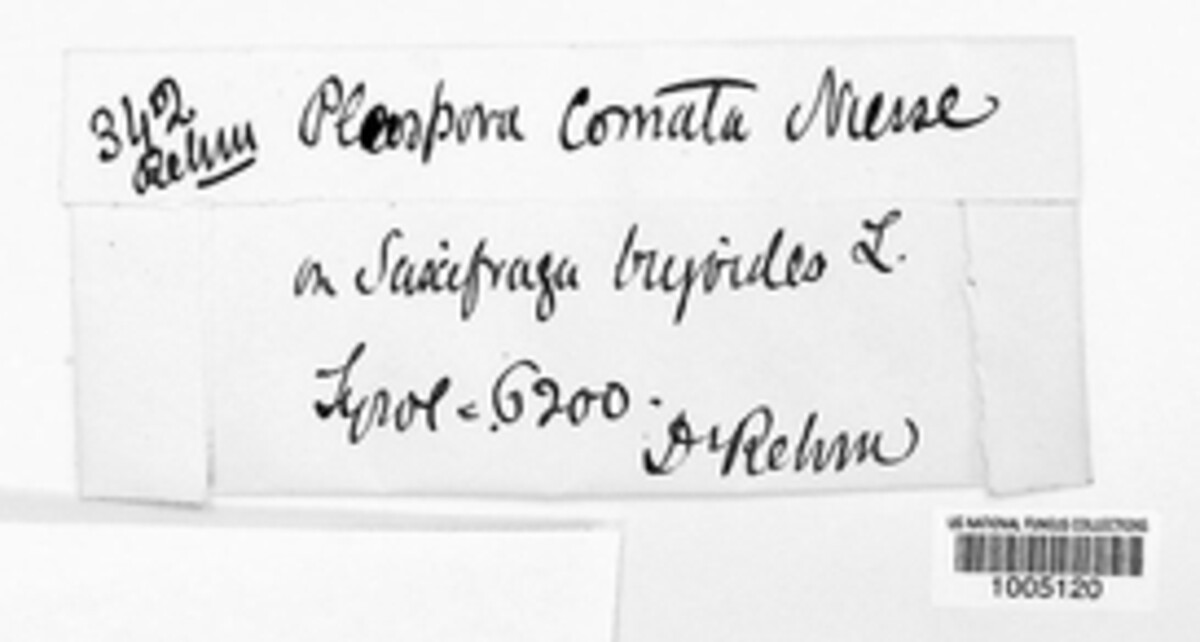 342
Rehm
Pleospora Comata Niessl
on Saxifraga bryoides L.
Tyrol - 6200.
Dr Rehm
US NATIONAL FUNGUS COLLECTIONS
1005120